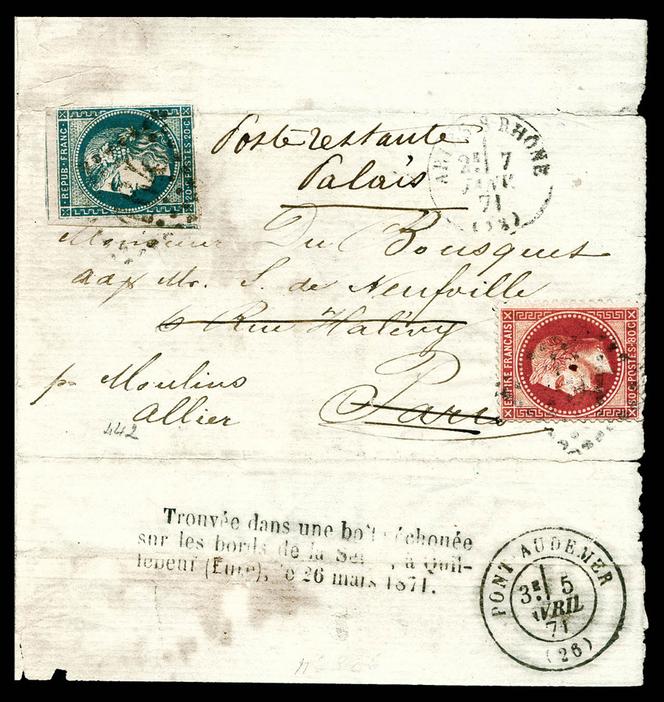 REPUB · FRANC ·
20 C · POSTES · 20 C ·
Poste restante
Palais
ARLES S RHÔNE
2E 7
JANV
71
Monsieur Du Bousquet
aux Mr. S. de Neufville
6 Rue Halévy
Paris
EMPIRE FRANÇAIS
80 C · POSTES · 80 C
pr Moulins
Allier
442
Trouvée dans une boîte échouée
sur les bords de la Seine, à Quil-
lebeuf (Eure), le 26 mars 1871.
PONT-AUDEMER
3E 5
AVRIL
71
(26)